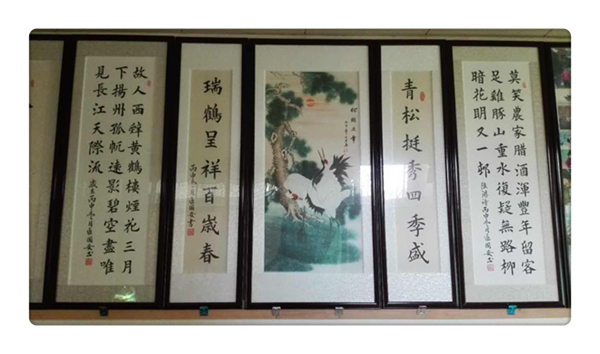 莫笑農家腊酒渾豐年留客
足雞豚山重水復疑無路柳
暗花明又一邨
青松挺秀四季盛
松鶴延年
瑞鶴呈祥百歲春
故人西辭黃鶴樓煙花三月
下揚州孤帆遠影碧空盡唯
見長江天際流